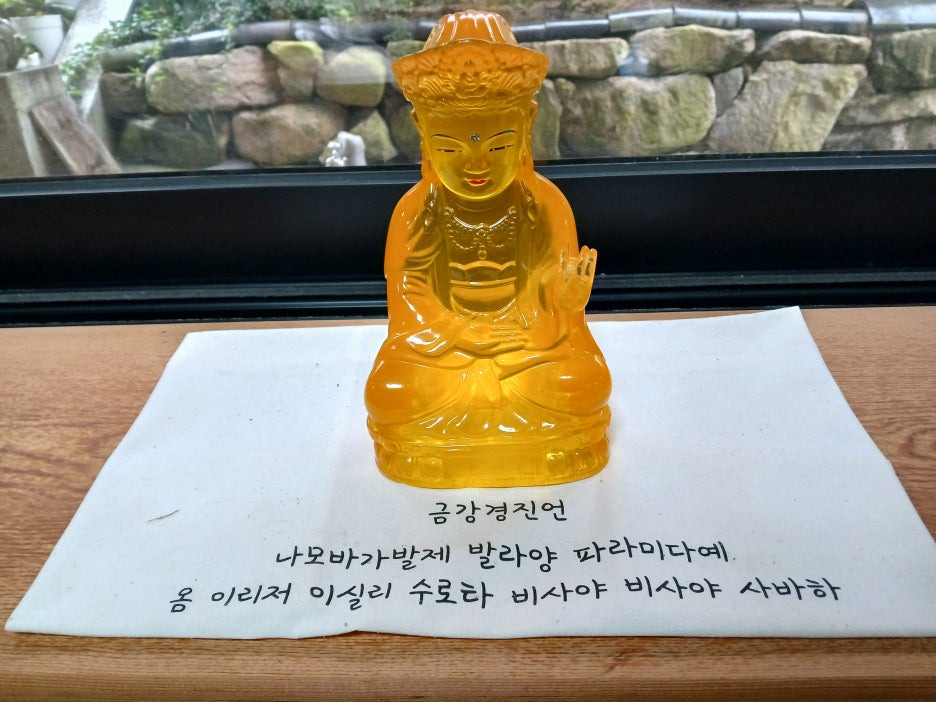 금강경진언
나모바가발제 발라양 파라미다예
옴 이리저 이실리 수로타 비사야 비사야 사바하